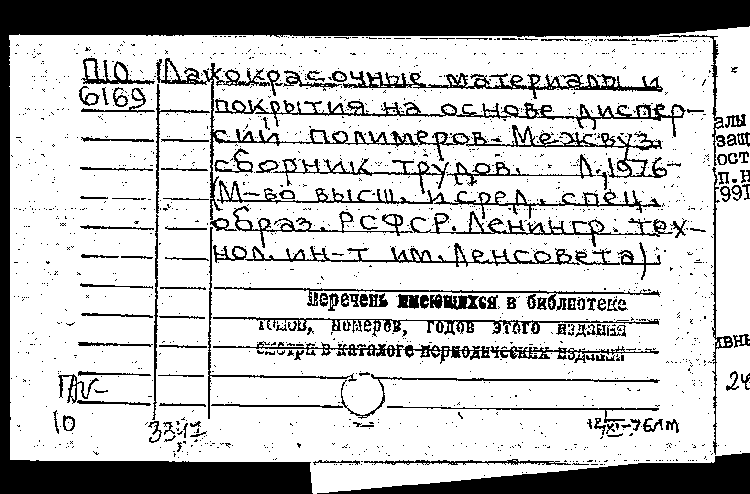 П10 Лакокрасочные материалы и
6169 покрытия на основе диспер-
сий полимеров. Межвуз.
сборник трудов. Л., 1976-
(М-во высш. и сред. спец.
образ. РСФСР. Ленингр. тех-
нол. ин-т им. Ленсовета).
Перечень имеющихся в библиотеке
томов, номеров, годов этого издания
смотри в каталоге периодических изданий
10